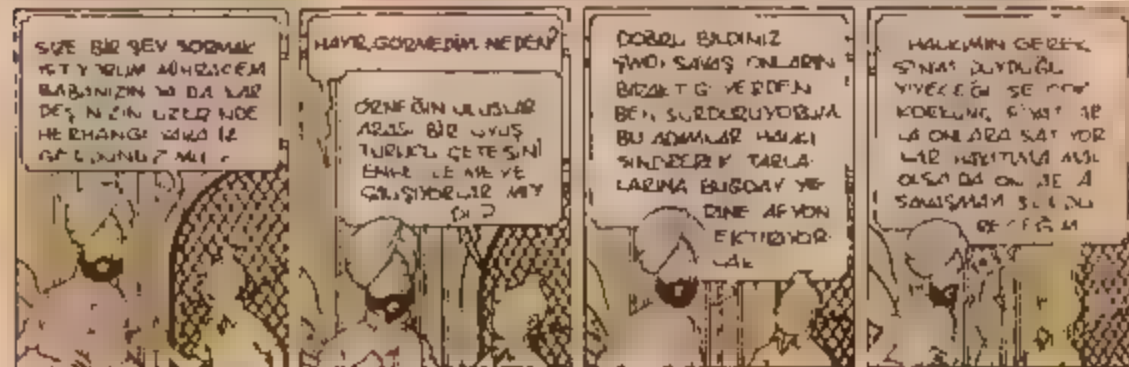 SIZE BİR ŞEY SORMAK
İSTİYORUM MİHRACEM
BABANIZIN YA DA KAR
DEŞİNİZİN ÜZERİNDE
HERHANGİ
MI
HAYIR, GÖRMEDİM NEDEN?
ÖRNEĞİN ULUSLAR
ARASI BİR UYUŞ
TURUCU ÇETESİNİ
ENGELLEMEYE
ÇALIŞIYORLAR MIY
DI?
DOĞRU BİLDİNİZ
ŞİMDİ SAVAŞ ONLARIN
BIRAKTIĞI YERDEN
BEN SÜRDÜRÜYORUM
BU ADAMLAR HALKI
SİNDİREREK TARLA
LARINA BUĞDAY YE
RİNE AFYON
EKTİRİYOR
LAR
HALKIMIN GEREK
SİNİM DUYDUĞU
YİYECEĞİ İSE ÇOK
KORKUNÇ FİYATLAR
LA ONLARA SATIYOR
LAR HAYATIMA MAL
OLSA DA ONLARLA
SAVAŞMAYI SÜRDÜ
RECEĞİM